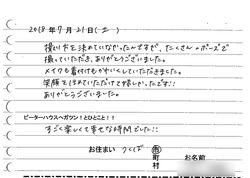 2018年 7月 21日(土)
撮り方を決めていなかったんですが、たくさんのポーズで
撮っていただき、ありがとうございました。
メイクも着付けもかわいくしていただきました。
笑顔をほめていただけて嬉しかったです!!
ありがとうございました。
ピーターハウスへガツン!とひとこと!!
すごく楽しくて幸せな時間でした!!
お住まい つくば 市 町 村 お名前